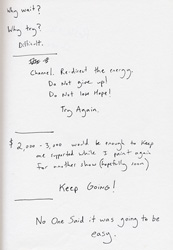 Why wait?
Why try?
Difficult.
Channel. Re-direct the energy.
Do not give up!
Do not lose Hope!
Try Again.
$ 2,000 - 3,000 would be enough to keep
me supported while I paint again
for another show (hopefully soon)
Keep Going!
No One Said it was going to be
easy.